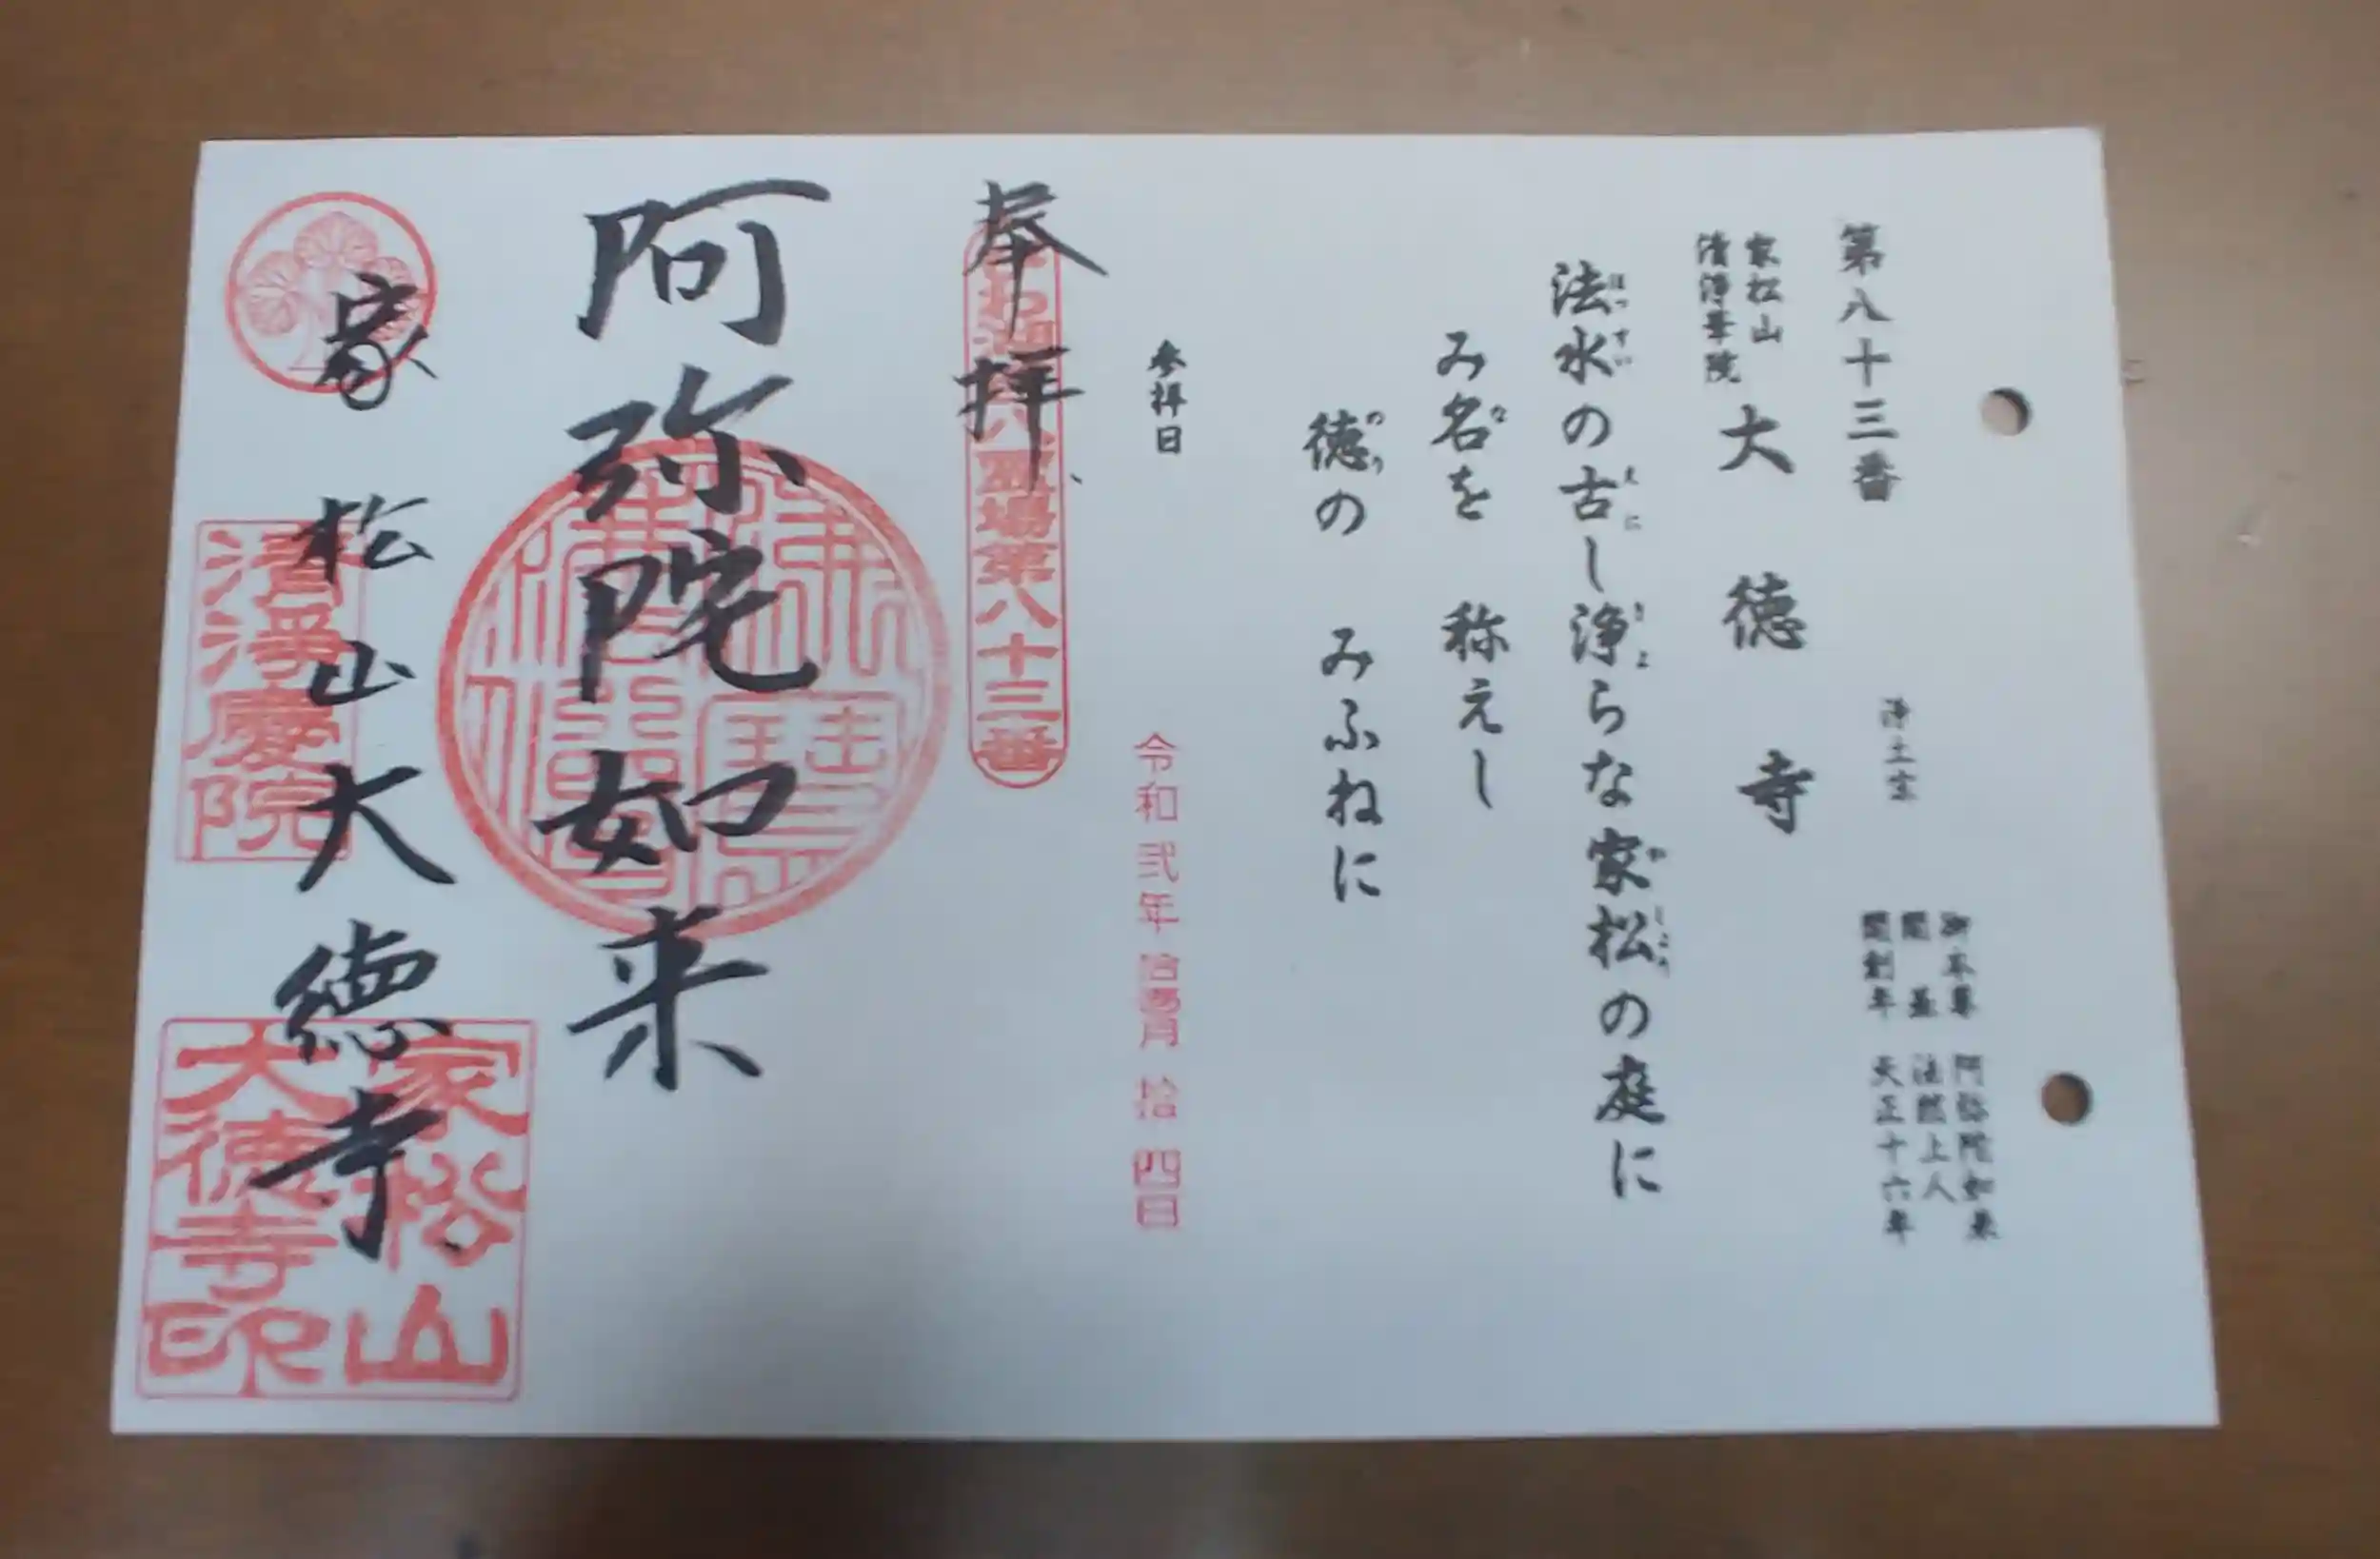 第八十三番
浄土宗
御本尊 阿弥陀如来
開基 法然上人
開創年 天正十六年
家松山
清浄華院
大徳寺
法水の古し浄らな家松の庭に
み名を 称えし
徳の みふねに
参拝日
令和弐年 拾四日
奉拝
霊場第八十三番
阿弥陀如来
家松山大徳寺
清浄慶院
家松山
大徳寺印